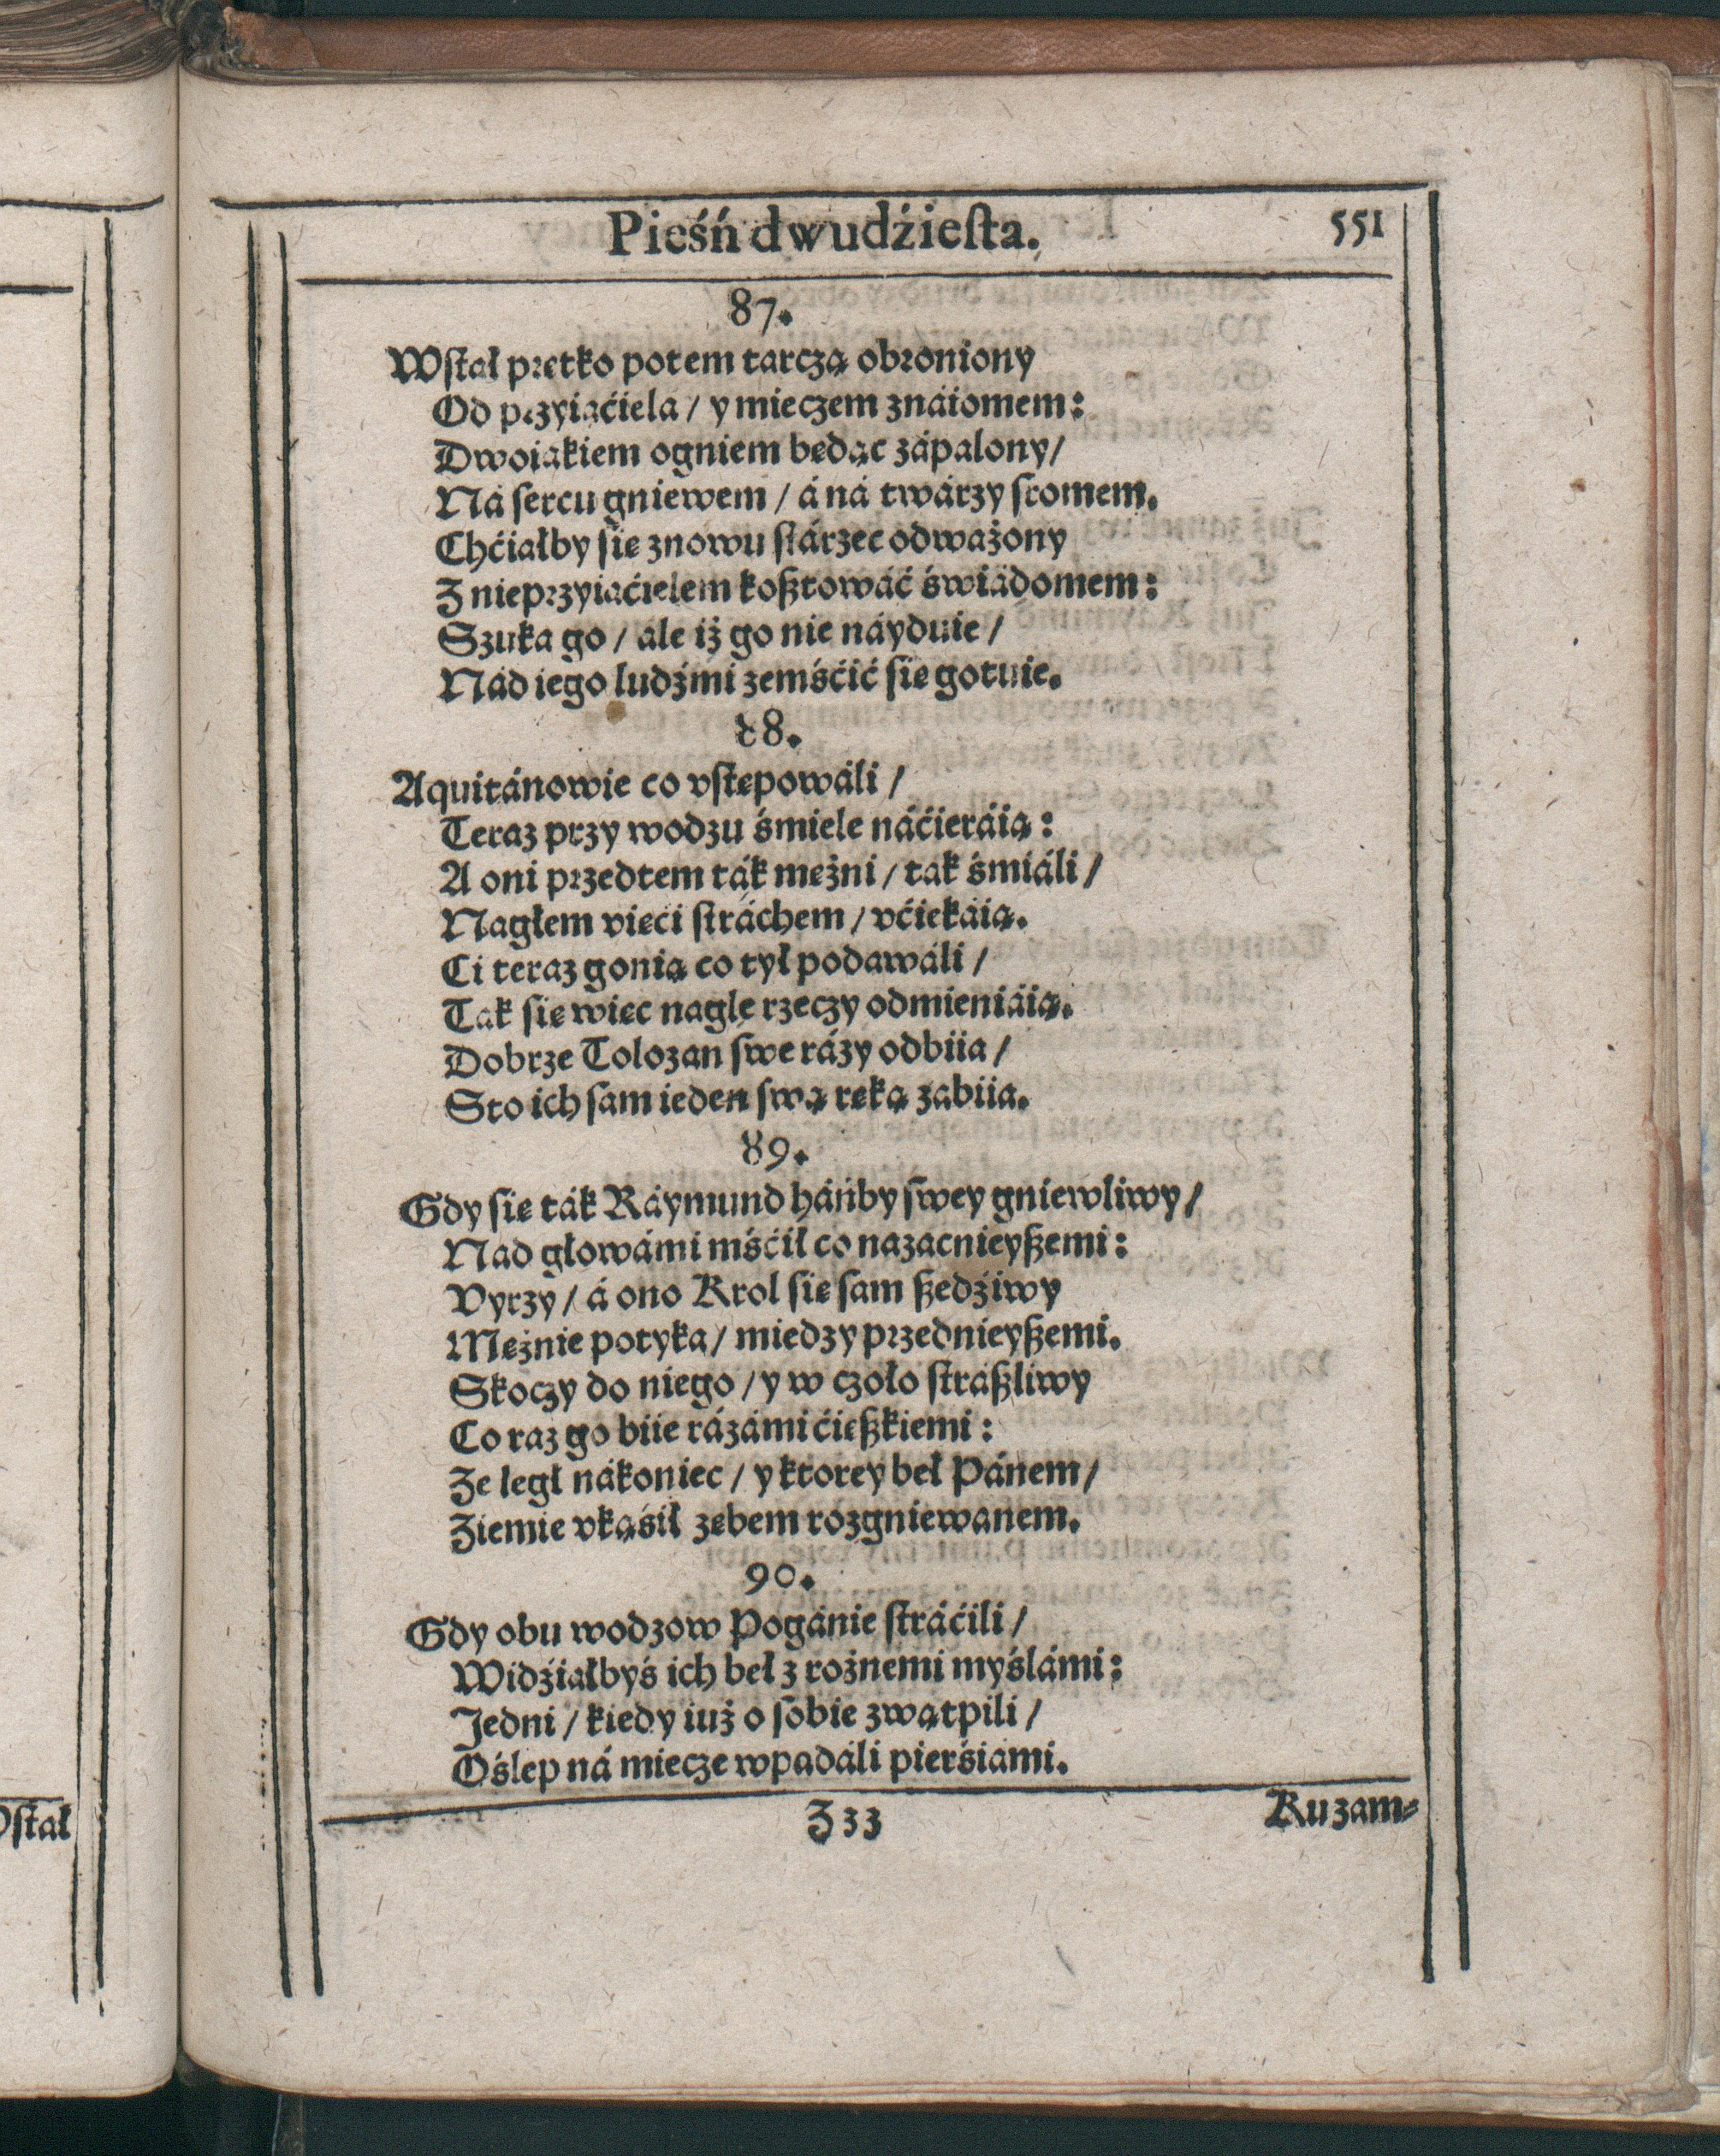 Pieśń dwudźiesta. 551
87.
Wstał prętko potem tarczą obroniony
Od przyiaćiela / y mieczem znáiomem:
Dwoiakiem ogniem będąc zápalony /
Ná sercu gniewem / á ná twárzy sromem.
Chćiałby się znowu stárzec odważony
Z nieprzyiaćielem kosztowáć świádomem:
Szuka go / ale iż go nie náyduie /
Nád iego ludźmi zemśćić się gotuie.
88.
Aquitánowie co vstępowáli /
Teraz przy wodzu śmiele náćieráią:
A oni przedtem ták mężni / tak śmiáli /
Nagłem vięci stráchem / vćiekáią.
Ci teraz gonią co tył podawáli /
Tak się więc nagle rzeczy odmieniáią.
Dobrze Tolozan swe rázy odbiia /
Sto ich sam ieden swą ręką zabiia.
89.
Gdy się ták Ráymund háńby swey gniewliwy /
Nad głowámi mśćił co nazacnieyszemi:
Vyrzy / á ono Krol się sam szedźiwy
Mężnie potyka / miedzy przednieyszemi.
Skoczy do niego / y w czoło straszliwy
Co raz go biie rázámi ćięszkiemi:
Ze legł nákoniec / y ktorey beł Pánem /
Ziemie vkąśił zębem rozgniewanem.
90.
Gdy obu wodzow Pogánie stráćili /
Widźiałbyś ich beł z rożnemi myślámi:
Jedni / kiedy iuż o sobie zwątpili /
Oślep ná miecze wpadáli pierśiami.
Z33 Ku zam-